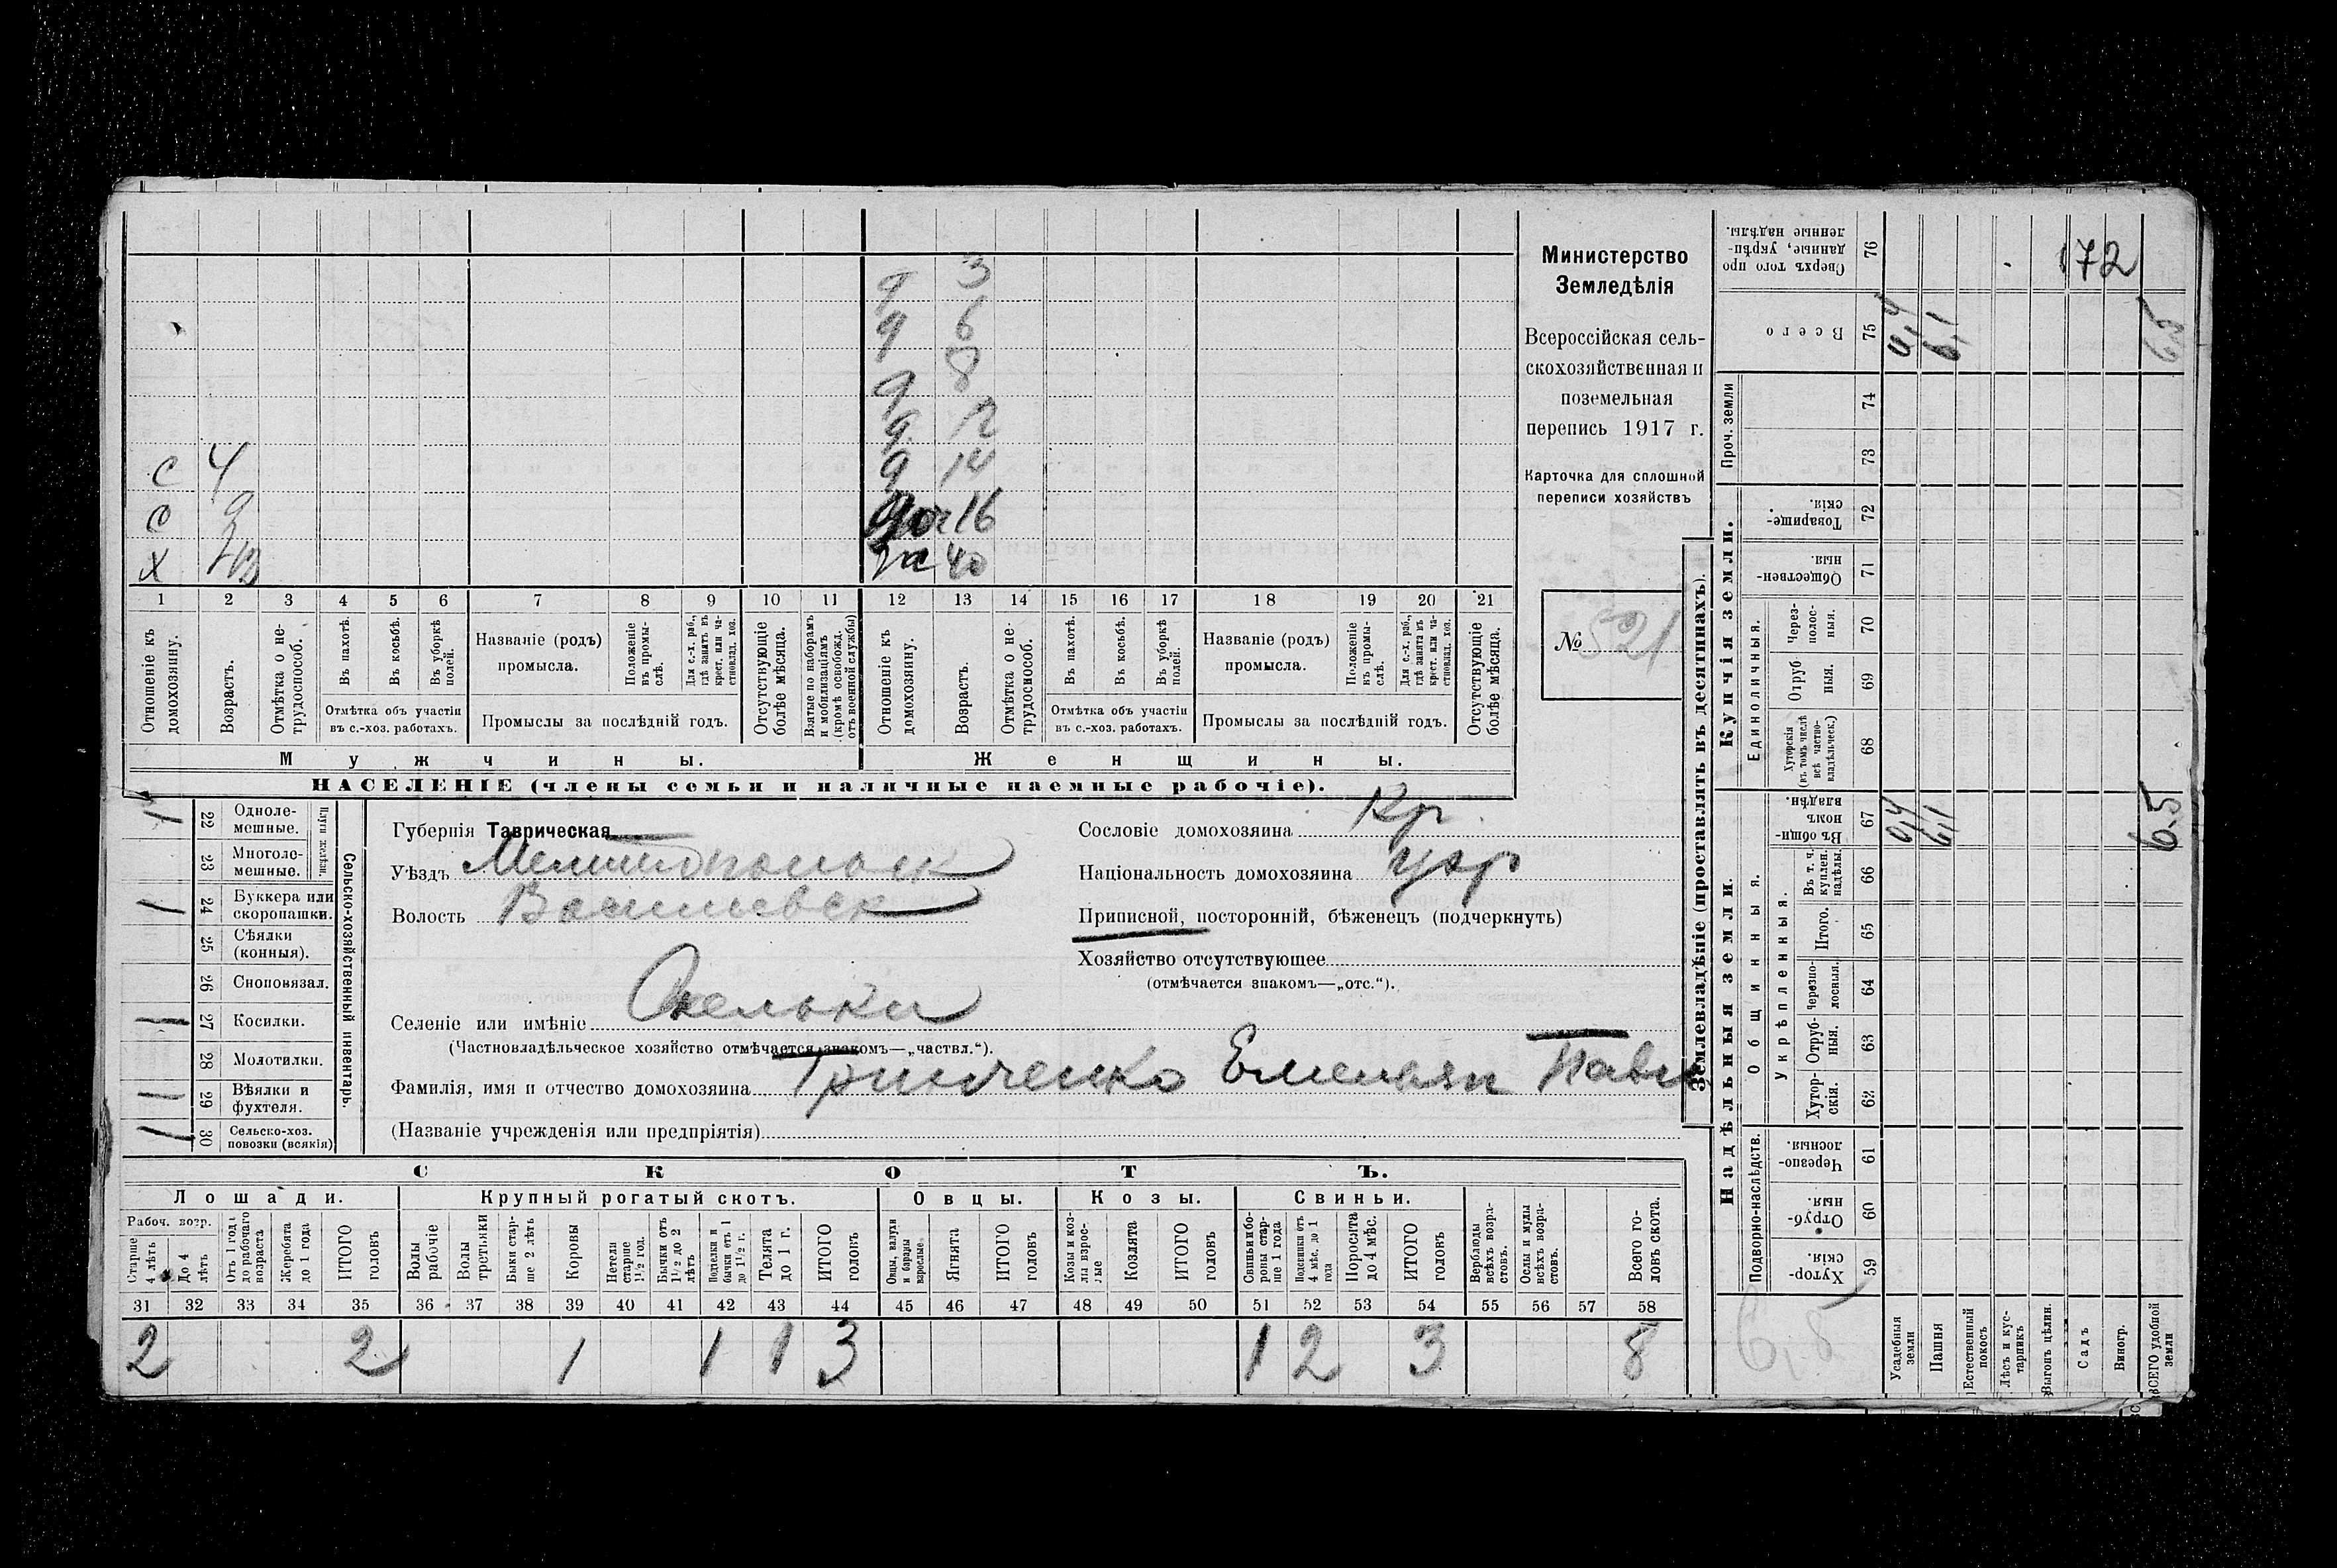 3
д 6
д 8
д
д 12
с 4 д 14
с 9 доч 16
х 43 ж 40
1 2 3 4 5 6 7 8 9 10 11 12 13 14 15 16 17 18 19 20 21
Отношеніе къ домохозяину.
Возрастъ.
Отмѣтка о не-трудоспособ.
Въ пахотѣ.
Въ косьбѣ.
Въ уборкѣ полей.
Отмѣтка объ участіи
въ с.-хоз. работахъ.
Названіе (родъ)
промысла.
Положеніе въ промы-слѣ.
Для с.-х. раб., гдѣ занятъ въ крест. или ча-стновлад. хоз.
Промыслы за послѣдній годъ.
Отсутствующіе болѣе мѣсяца.
Взятые по наборамъ и мобилизаціямъ (кромѣ освобожд. отъ военной службы)
Отношеніе къ домохозяину.
Возрастъ.
Отмѣтка о не-трудоспособ.
Въ пахотѣ.
Въ косьбѣ.
Въ уборкѣ полей.
Отмѣтка объ участіи
въ с.-хоз. работахъ.
Названіе (родъ)
промысла.
Положеніе въ промы-слѣ.
Для с.-х. раб., гдѣ занята въ крест. или ча-стновлад. хоз.
Промыслы за послѣдній годъ.
Отсутствующіе болѣе мѣсяца.
Мужчины.
Женщины.
НАСЕЛЕНІЕ (члены семьи и наличные наемные рабочіе).
Министерство
Земледѣлія
Всероссійская сель-
скохозяйственная и
поземельная
перепись 1917 г.
Карточка для сплошной
переписи хозяйствъ
№ 521
1 22 Одноле-мешные.
23 Многоле-мешные.
Плуги желѣзн.
1 24 Буккера или скоропашки.
25 Сѣялки (конныя).
26 Сноповязал.
1 27 Косилки.
28 Молотилки.
1 29 Вѣялки и фухтеля.
1 30 Сельско-хоз. повозки (всякія)
Сельско-хозяйственный инвентарь.
Губернія Таврическая
Уѣздъ Мелитопольск
Волость Васильевск
Селеніе или имѣніе
(Частновладѣльческое хозяйство отмѣчается знакомъ—„частвл.“).
Фамилія, имя и отчество домохозяина Грищенко Емельян Павл
(Названіе учрежденія или предпріятія)
Сословіе домохозяина Кр
Національность домохозяина укр
Приписной, посторонній, бѣженецъ (подчеркнуть)
Хозяйство отсутствующее
(отмѣчается знакомъ—„отс.“).
СКОТЪ.
Лошади. Крупный рогатый скотъ. Овцы. Козы. Свиньи.
Рабоч. возр.
Старше 4 лѣтъ
До 4 лѣтъ
Отъ 1 года до рабочаго возраста
Жеребята до 1 года
ИТОГО головъ
Волы рабочіе
Волы третьяки
Быки стар-ше 2 лѣтъ
Коровы
Нетели старше 1½ год.
Бычки отъ 1½ до 2 лѣтъ
Подтелки и бычки отъ 1 до 1½ г.
Телята до 1 г.
ИТОГО головъ
Овцы, валухи и бараны взрослые
Ягнята
ИТОГО головъ
Козы и коз-лы взрос-лые
Козлята
ИТОГО головъ
Свиньи бо-ровы стар-ше 1 года
Подсвинки отъ 4 мѣс. до 1 года
Поросята до 4 мѣс.
ИТОГО головъ
Верблюды всѣхъ возра-стовъ.
Ослы и мулы всѣхъ возра-стовъ.
Всего го-ловъ скота.
31 32 33 34 35 36 37 38 39 40 41 42 43 44 45 46 47 48 49 50 51 52 53 54 55 56 57 58
2 2 1 1 1 3 1 2 3 8
Землевладѣніе (проставлять въ десятинахъ).
Надѣльныя земли. Купчія земли.
Проч. земли
Сверхъ того про-данные, укрѣп-ленные надѣлы. 76
172
Всего 75 0,4 6,1 6,5
74
73
Товарище-скія 72
Обществен-ныя. 71
Единоличныя.
Через-полос-ныя. 70
Отруб-ныя. 69
Хуторскія (въ томъ числѣ всѣ частно-владѣльческ.) 68
Въ общин-номъ владѣн. 67 0,4 6,1 6,5
Общинныя.
Укрѣпленныя.
Въ т. ч. куплен. надѣлы. 66
Итого. 65
Черезпо-лосныя. 64
Отруб-ныя. 63
Хутор-скія. 62
Подворно-наслѣдств.
Черезпо-лосныя 61
Отруб-ныя. 60
Хутор-скія. 59
6,5
Усадебныя земли
Пашня
Естественный покосъ
Лѣсъ и кус-тарникъ
Выгонъ цѣлин.
Садъ
Виногр.
ВСЕГО удобной земли